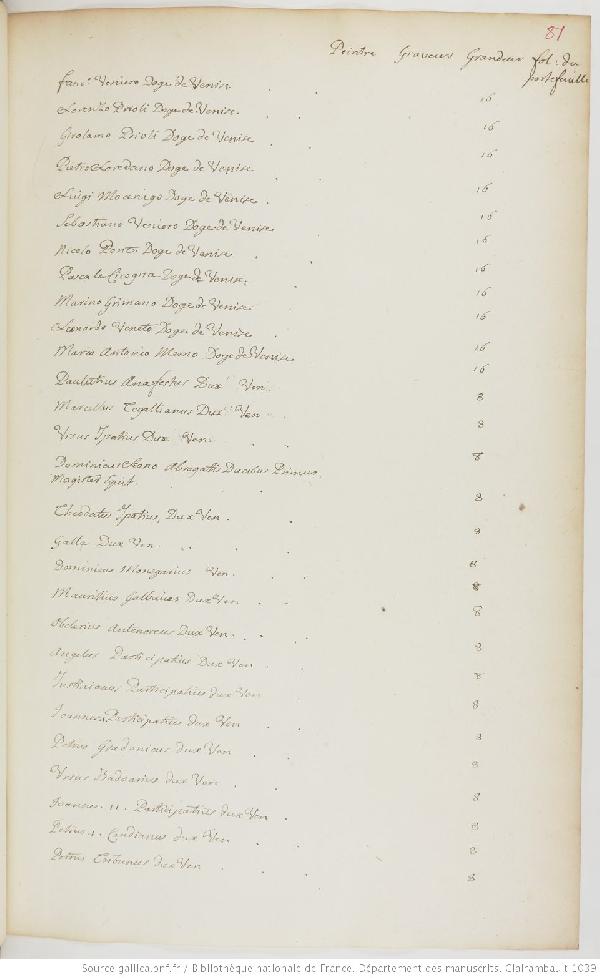 81
Peintre Graveurs Grandeur fol: du
portefeuille
fanc. Veniero Doge de Venise 16
Lorenzo Prioli Doge de Venise. 16
Girolamo Prioli Doge de Venise 16
Pietro Loredano Doge de Venise 16
Luigi Mocenigo Doge de Venise. 16
Sebastiano Veniero Doge de Venise 16
Nicolo Ponte Doge de Venise 16
Pascale Cicogna Doge de Venise. 16
Marino Grimano Doge de Venise. 16
Leonardo Veneto Doge de Venise 16
Marco Antonio Memo Doge de Venise 16
Paulutius Anafestus Dux Ven 8
Marcellus Tegallianus Dux Ven 8
Ursus Ipatius Dux Ven 8
Dominicus Leono Abrogatis Ducibus Primus
Magister Equit. 8
Theodatus Ipatius, Dux Ven. 8
Galla Dux Ven. 8
Dominicus Monegarius Ven. 8
Mauritius Galbaius Dux Ven 8
Obelerius Antenoreus Dux Ven. 8
Angelus Participatius Dux Ven 8
Justinianus Participatius dux Ven 8
Joannes Participatius dux Ven 8
Petrus Gradonicus dux Ven 8
Ursus Badoarius dux Ven 8
Joannes. 11. Participatius dux Ven 8
Petrus. 1. Candianus dux Ven 8
Petrus Tribunus dux Ven 8
Source gallica.bnf.fr / Bibliothèque nationale de France. Département des manuscrits. Clairambault 1039